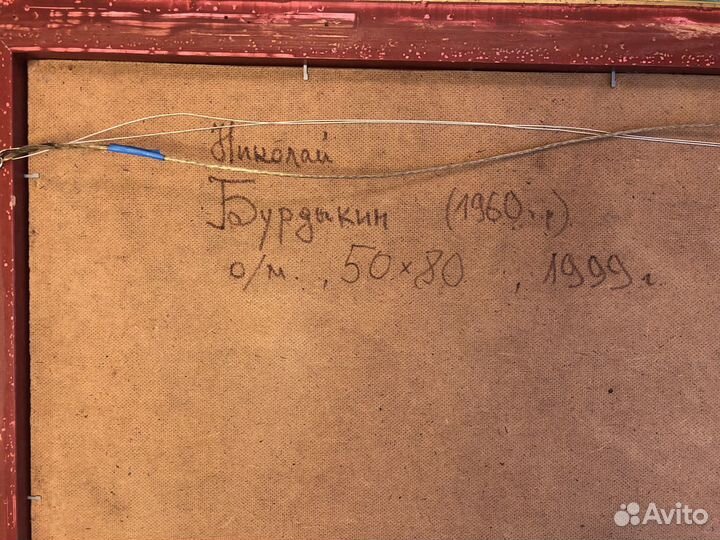 Николай
Бурдыкин (1960 г.р)
о/м. , 50×80 , 1999 г
Avito